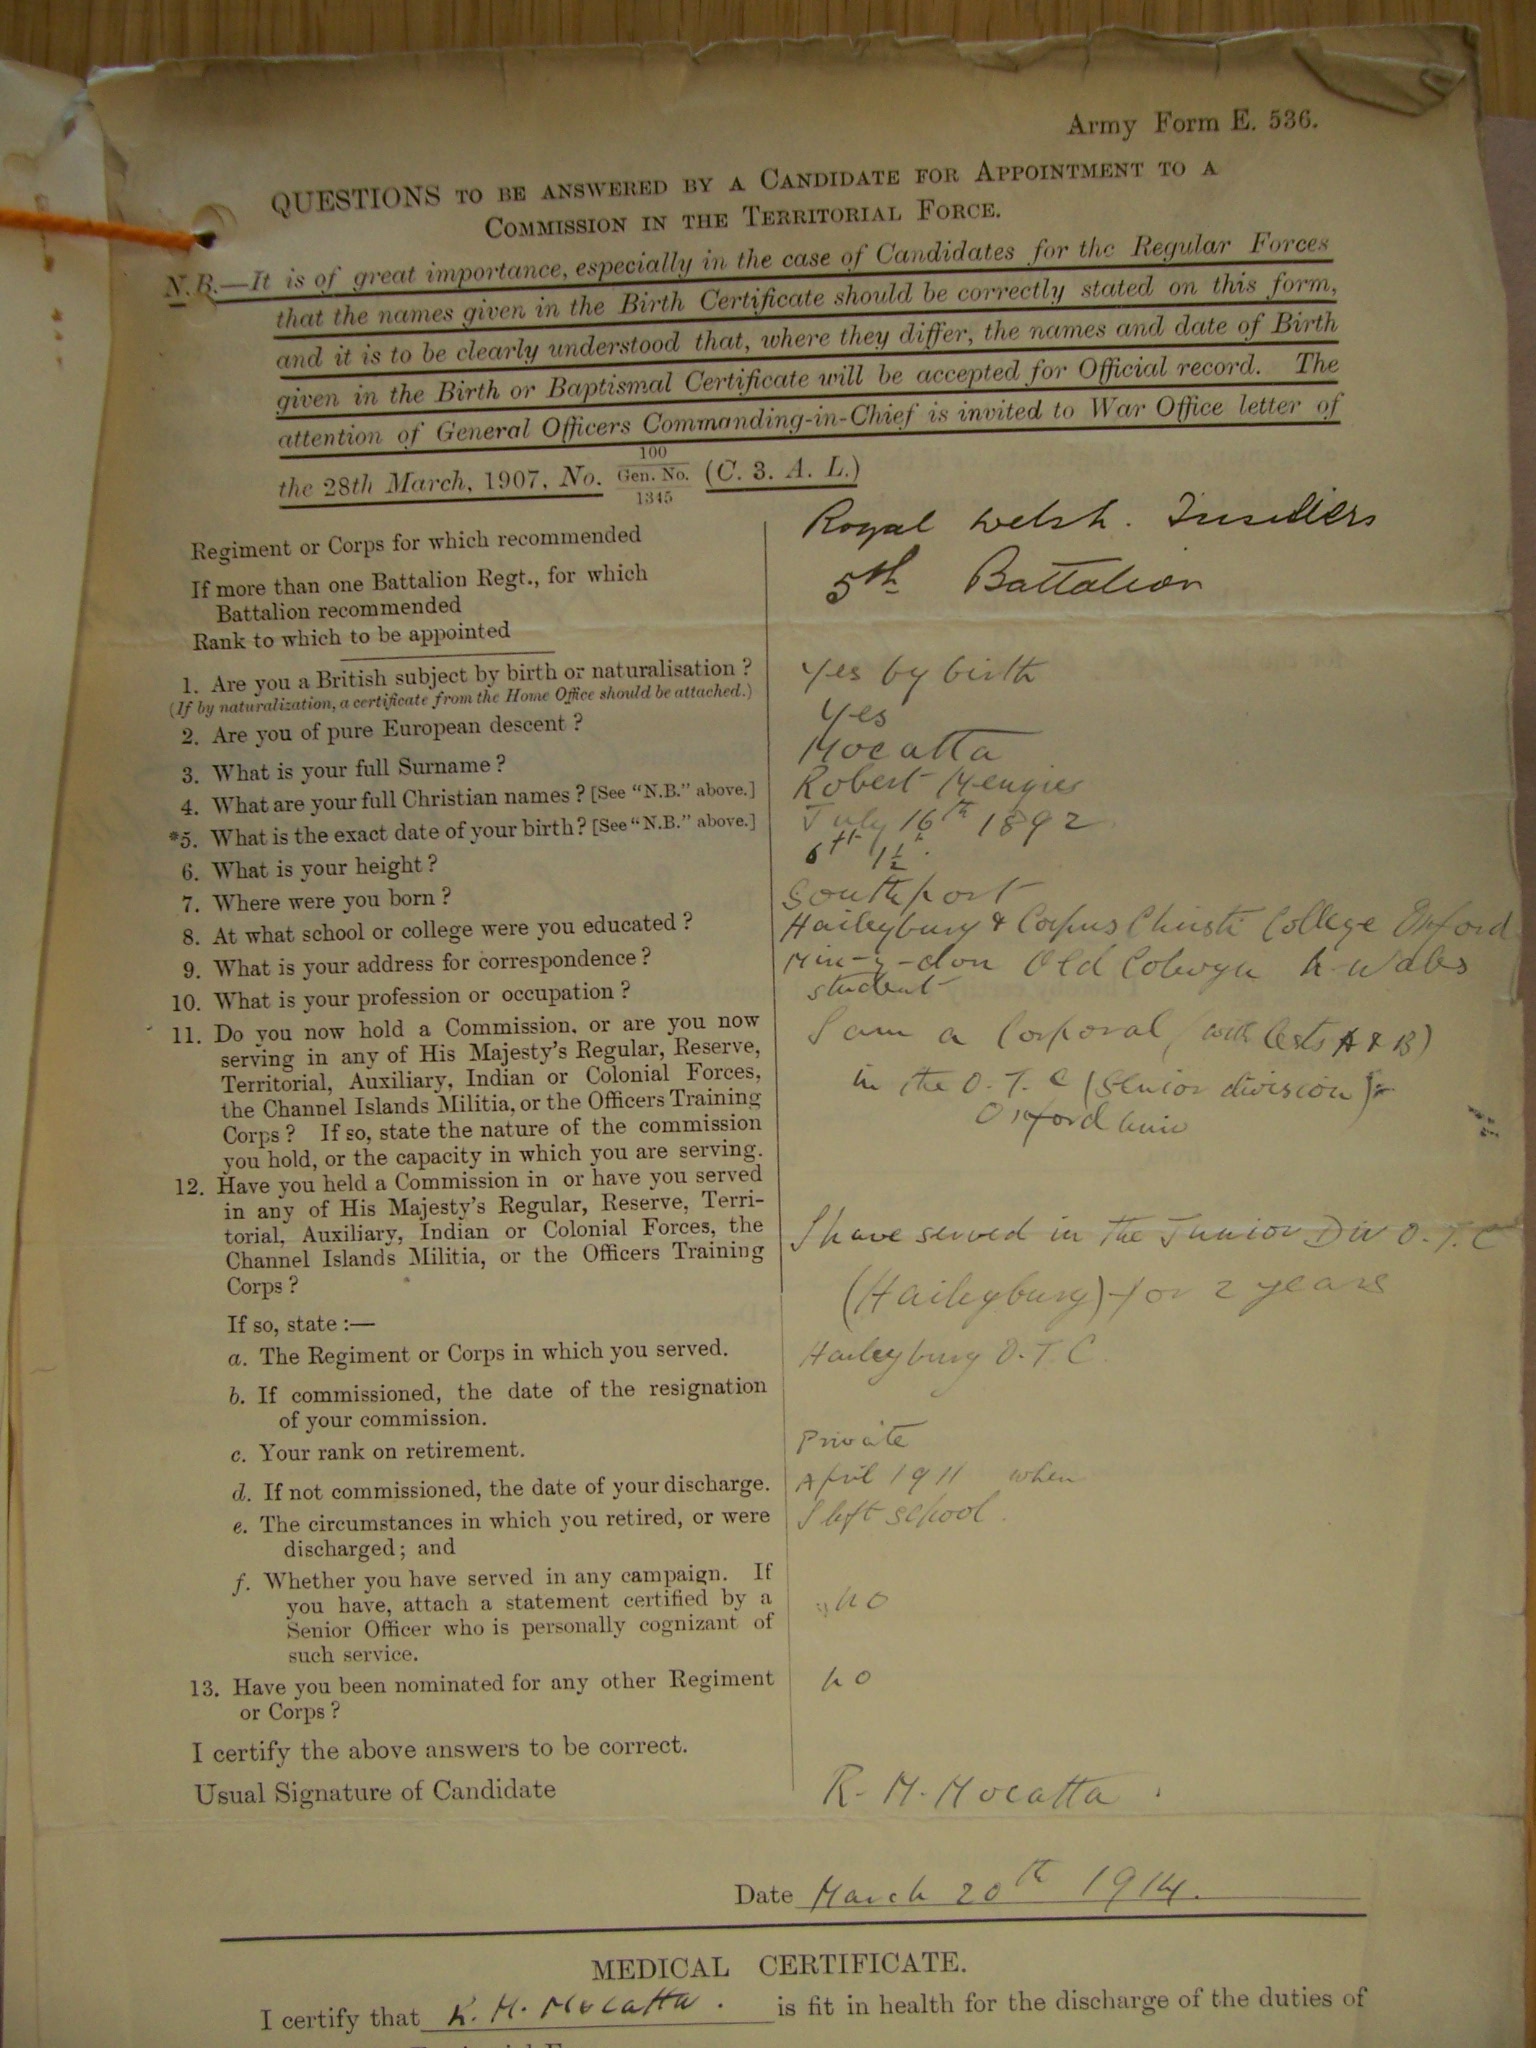 Army Form E. 536.
QUESTIONS TO BE ANSWERED BY A CANDIDATE FOR APPOINTMENT TO A
COMMISSION IN THE TERRITORIAL FORCE.
N.B.—It is of great importance, especially in the case of Candidates for the Regular Forces
that the names given in the Birth Certificate should be correctly stated on this form,
and it is to be clearly understood that, where they differ, the names and date of Birth
given in the Birth or Baptismal Certificate will be accepted for Official record. The
attention of General Officers Commanding-in-Chief is invited to War Office letter of
the 28th March, 1907, No. 100 / Gen. No. / 1345 (C. 3. A. L.)
Regiment or Corps for which recommended Royal Welsh. Fusiliers
If more than one Battalion Regt., for which 5th Battalion
Battalion recommended
Rank to which to be appointed
1. Are you a British subject by birth or naturalisation? Yes by birth
(If by naturalization, a certificate from the Home Office should be attached.)
2. Are you of pure European descent? Yes
3. What is your full Surname? Mocatta
4. What are your full Christian names? [See "N.B." above.] Robert Menzies
*5. What is the exact date of your birth? [See "N.B." above.] July 16th 1892
6. What is your height? 6ft 1½"
7. Where were you born? Southport
8. At what school or college were you educated? Haileybury & Corpus Christi College Oxford
9. What is your address for correspondence? Min-y-don Old Colwyn N. Wales
10. What is your profession or occupation? student
11. Do you now hold a Commission, or are you now I am a Corporal (with Certs A & B)
serving in any of His Majesty's Regular, Reserve,
Territorial, Auxiliary, Indian or Colonial Forces, in the O. T. C (Senior division)
the Channel Islands Militia, or the Officers Training Oxford Univ
Corps? If so, state the nature of the commission
you hold, or the capacity in which you are serving.
12. Have you held a Commission in or have you served
in any of His Majesty's Regular, Reserve, Terri-
torial, Auxiliary, Indian or Colonial Forces, the I have served in the Junior Div O. T. C
Channel Islands Militia, or the Officers Training
Corps? (Haileybury) for 2 years
If so, state :—
a. The Regiment or Corps in which you served. Haileybury O. T. C.
b. If commissioned, the date of the resignation
of your commission.
c. Your rank on retirement. Private
d. If not commissioned, the date of your discharge. April 1911 when
e. The circumstances in which you retired, or were I left school.
discharged; and
f. Whether you have served in any campaign. If
you have, attach a statement certified by a no
Senior Officer who is personally cognizant of
such service.
13. Have you been nominated for any other Regiment no
or Corps?
I certify the above answers to be correct.
Usual Signature of Candidate R. M. Mocatta.
Date March 20th 1914.
MEDICAL CERTIFICATE.
I certify that R. M. Mocatta. is fit in health for the discharge of the duties of